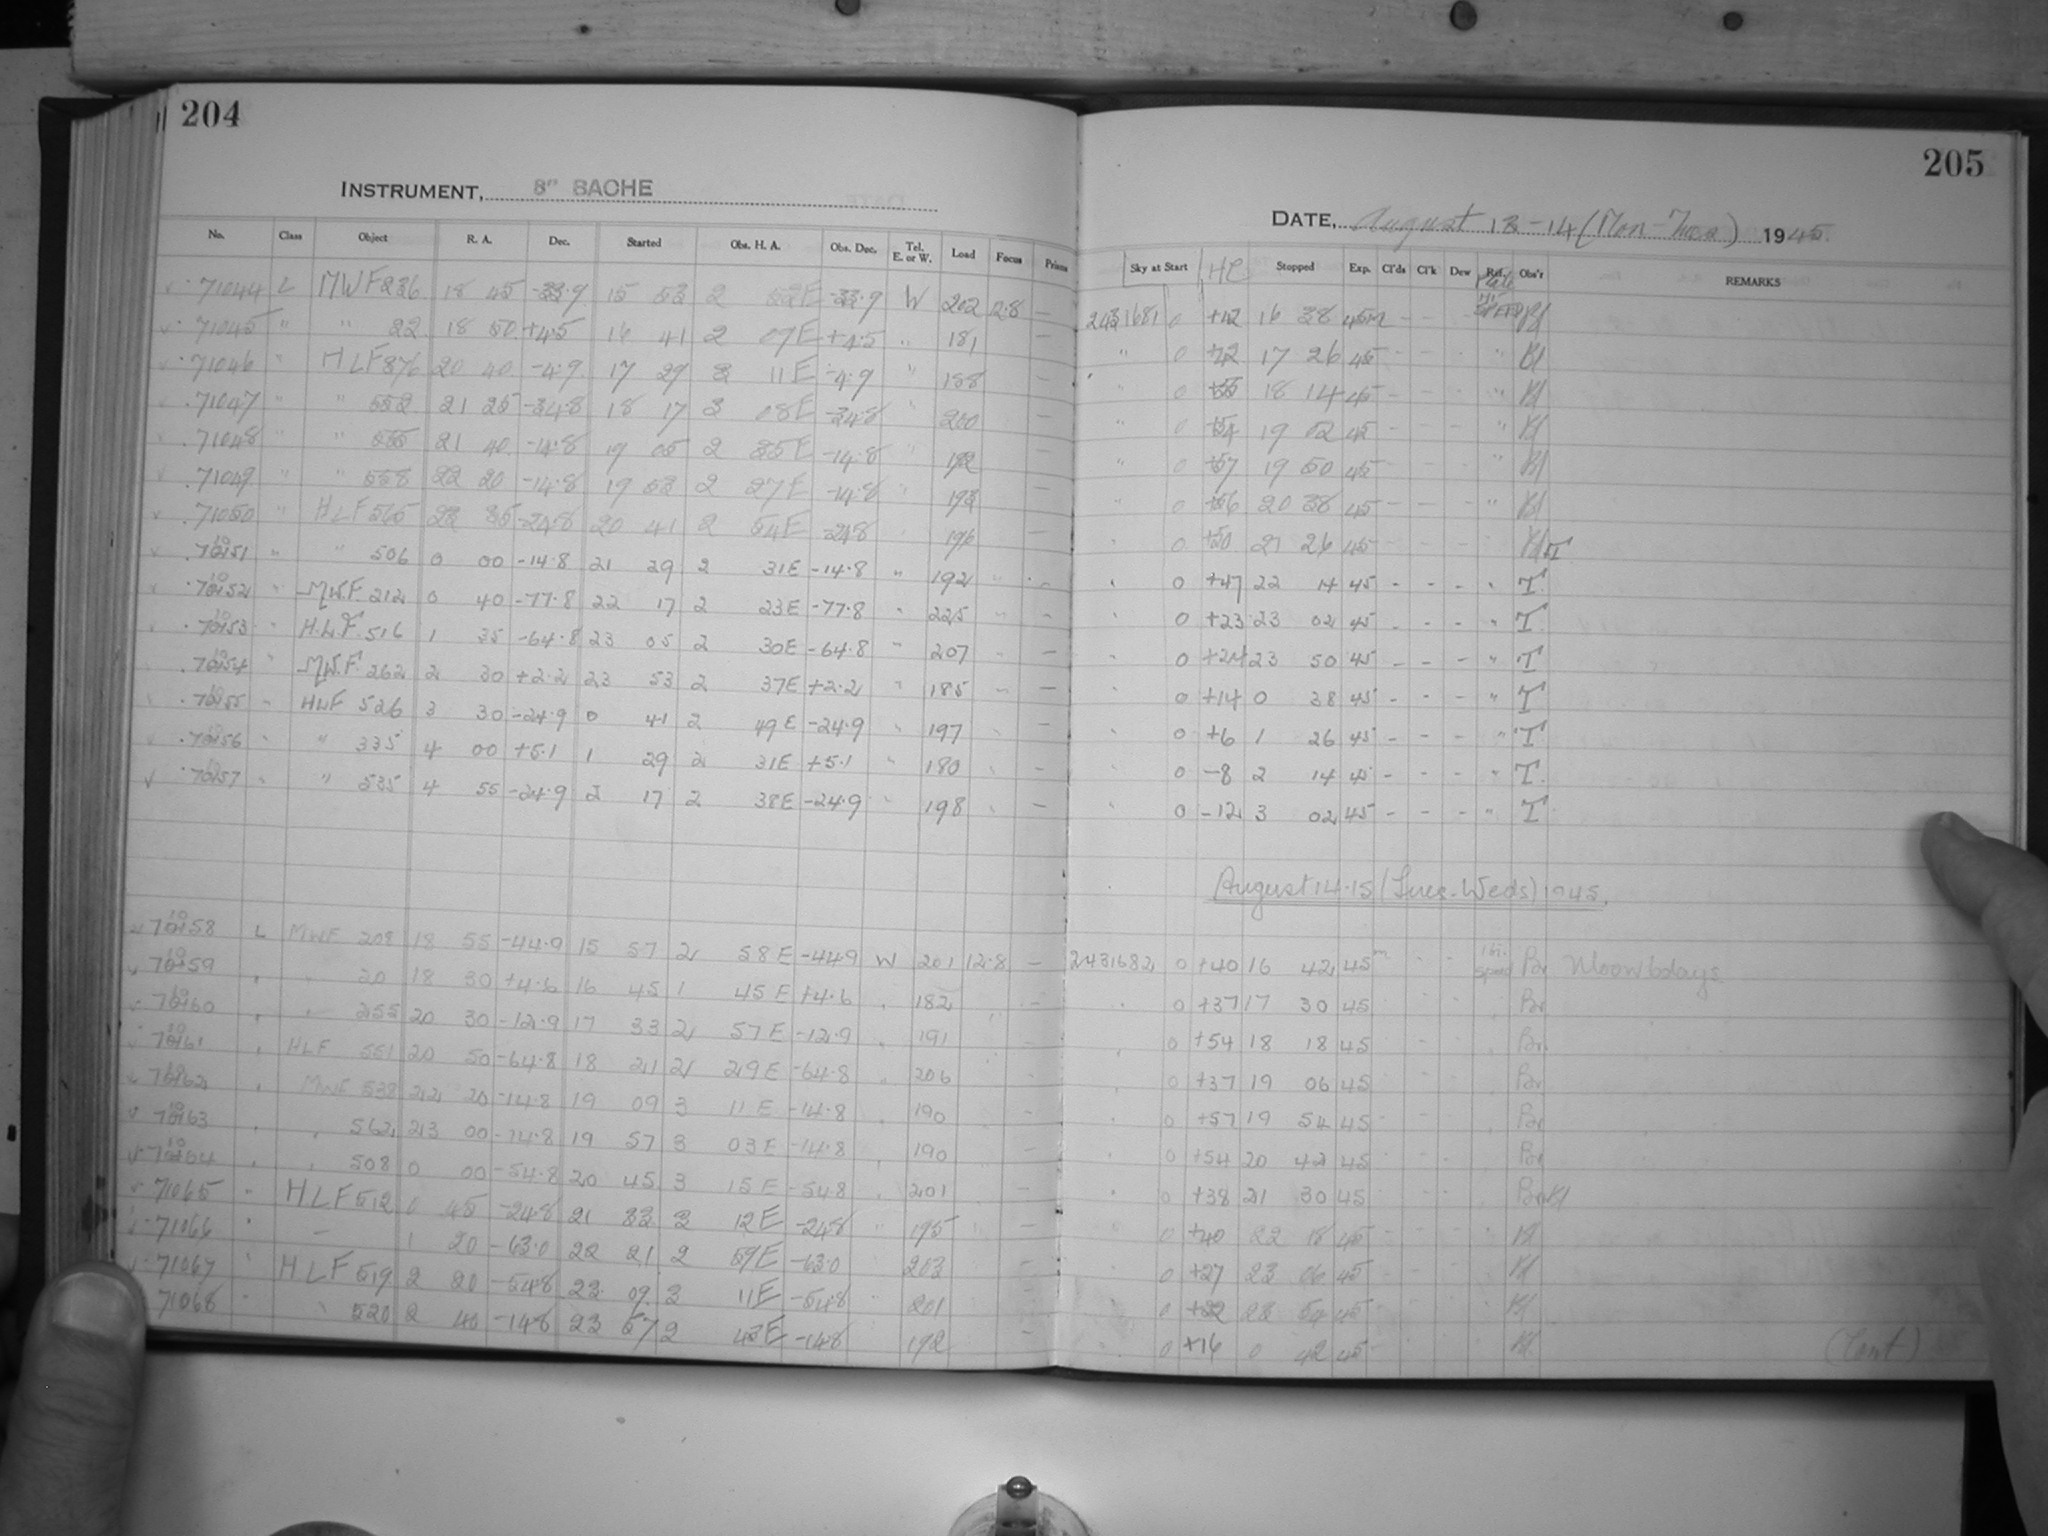 204
INSTRUMENT, 8" BACHE
No. Class Object R. A. Dec. Started Obs. H. A. Obs. Dec. Tel. E. or W. Load Focus Prism
71044 L MWF 236 18 45 -33.9 15 53 2 52E -33.9 W 202 12.8 —
71045 " " 22 18 50 +4.5 16 41 2 07E +4.5 " 181 —
71046 " HLF 376 20 40 -4.9 17 29 2 11E -4.9 " 188 —
71047 " " 552 21 25 -34.8 18 17 3 08E -34.8 " 200 —
71048 " " 555 21 40 -14.8 19 05 2 35E -14.8 " 192 —
71049 " " 558 22 20 -14.8 19 53 2 27E -14.8 " 193 —
71050 " HLF 565 23 35 -24.8 20 41 2 54E -24.8 196 —
71051 " " 506 0 00 -14.8 21 29 2 31E -14.8 " 192 " —
71052 " M.W.F. 212 0 40 -77.8 22 17 2 23E -77.8 " 225 " —
71053 " H.L.F. 516 1 35 -64.8 23 05 2 30E -64.8 " 207 " —
71054 " M.W.F. 262 2 30 +2.2 23 53 2 37E +2.2 " 185 " —
71055 " HLF 526 3 30 -24.9 0 41 2 49E -24.9 " 197 —
71056 " " 335 4 00 +5.1 1 29 2 31E +5.1 " 180 " —
71057 " " 535 4 55 -24.9 2 17 2 38E -24.9 " 198 " —
71058 L MWF 208 18 55 -44.9 15 57 2 58E -44.9 W 201 12.8 —
71059 " " 20 18 30 +4.6 16 45 1 45E +4.6 " 182 " —
71060 " " 255 20 30 -12.9 17 33 2 57E -12.9 " 191 —
71061 " HLF 551 20 50 -64.8 18 21 2 29E -64.8 " 206 —
71062 " MWF 538 22 20 -14.8 19 09 3 11E -14.8 " 190 —
71063 " " 562 23 00 -14.8 19 57 3 03E -14.8 " 190 —
71064 " " 508 0 00 -54.8 20 45 3 15E -54.8 " 201 —
71065 " HLF 512 0 45 -24.8 21 33 3 12E -24.8 " 195 " —
71066 " — 1 20 -63.0 22 21 2 59E -63.0 203 —
71067 " HLF 519 2 20 -54.8 23 09 3 11E -54.8 " 201 —
71068 " " 520 2 40 -14.8 23 57 2 43E -14.8 192 —
205
DATE, August 13-14 (Mon-Tues) 1945.
Sky at Start HC Stopped Exp. Cl'ds Cl'k Dew Ref. Plate Obs'r REMARKS
2431681 0 +42 16 38 45m - - Hi Speed Bl
" 0 +42 17 26 45 - - " Bl
" 0 +55 18 14 45 - - " Bl
" 0 +54 19 02 45 - - " Bl
" 0 +57 19 50 45 - - " Bl
" 0 +56 20 38 45 - - " Bl
" 0 +50 21 26 45 - - " Bl T
" 0 +47 22 14 45 - - - " T.
" 0 +23 23 02 45 - - - " T.
" 0 +24 23 50 45 - - - " T
" 0 +14 0 38 45 - - - " T
" 0 +6 1 26 45 - - - " T
" 0 -8 2 14 45 - - - " T.
0 -12 3 02 45 - - - " T
August 14-15 (Tues-Weds) 1945.
2431682 0 +40 16 42 45m - - Hi-speed Br Moon 6 days
" 0 +37 17 30 45 - - " Br
" 0 +54 18 18 45 - - " Br
" 0 +37 19 06 45 - - " Br
" 0 +57 19 54 45 - - " Br
" 0 +54 20 42 45 - - " Br
" 0 +38 21 30 45 - - " Br Bl
0 +40 22 18 45 - - Bl
0 +27 23 06 45 - - Bl
0 +22 23 54 45 - - Bl
0 +16 0 42 45 - Bl
(Cont)